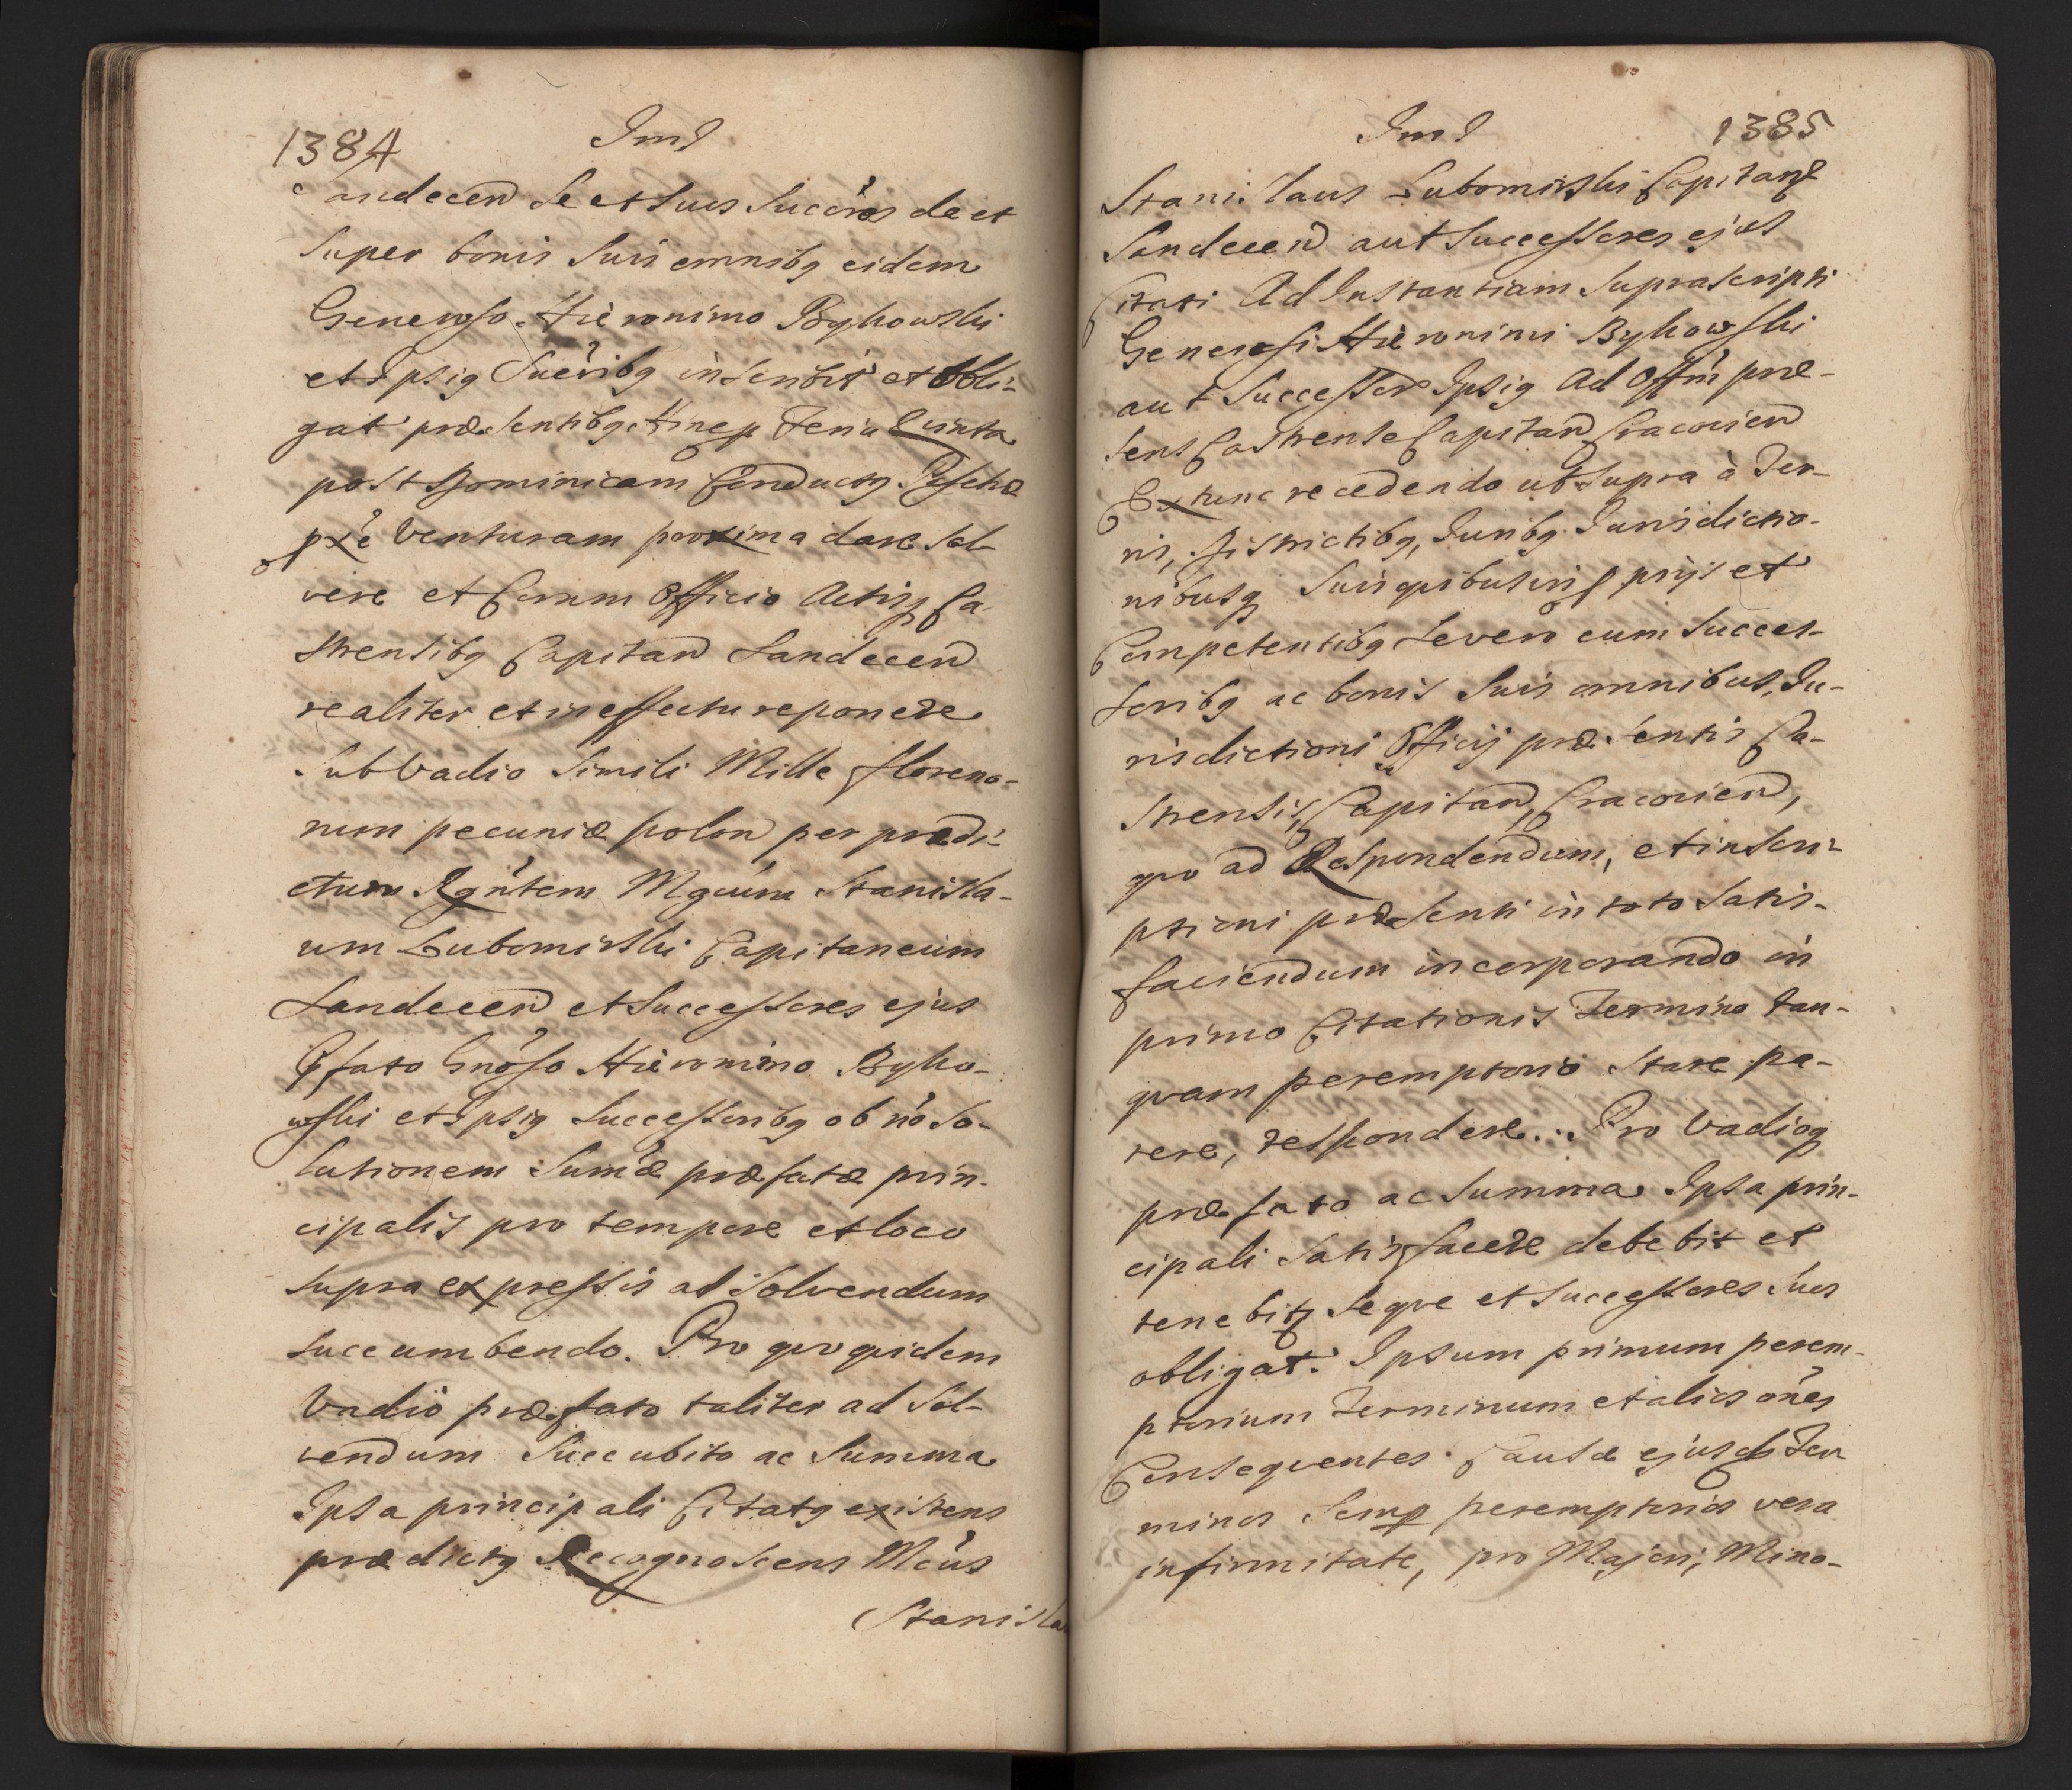 1384
Jmd
andecen Se et Suos Succres de et
Super bonis Suis omnibq eidem
Generoso Hieronimo Bykowski
et Ipsiq Sucribq inscribit et obli-
gat præsentibq Hinc Feria Quinta
post Dominicam Conductq Paschæ
pxe Venturam proxima dare Sol-
vere et Coram Officio Actisq Ca-
strensibq Capitan Sandecen
realiter et in effectu reponere
Sub Vadio Simili Mille floreno-
rum pecuniæ polon per prædi-
ctum Rgntem Mgcum Stanisla-
um Lubomirski Capitaneum
Sandecen et Successores ejus
Pfato Gnoso Hieronimo Byko-
wski et Ipsiq Successoribq ob no So-
lutionem Sumæ præfatæ prin-
cipalis pro tempore et loco
Supra expressis ad Solvendum
Succumbendo. Pro quo quidem
Vadio præfato taliter ad Sol-
vendum Succubito ac Summa
Ipsa principali Citatq existens
prædictq Recognoscens Mcus
Stanisla
Jmd
1385
Stanislaus Lubomirski Capitanq
Sandecen aut Successores ejus
Citati Ad Instantiam Suprascripti
Generosi Hieronimi Bykowski
aut Successor Ipsiq Ad Offm præ-
sens Castrense Capitan Cracovien
Extunc recedendo ut Supra à Ter-
ris, Districtibq, Juribq Jurisdictio-
nibusq Suis quibusvis prijs et
Competentibq Se vero cum Succes-
soribq ac bonis Suis omnibus, Ju-
risdictioni Officij præsentis Ca-
strensis, Capitan, Cracovien,
quo ad Respondendum, et inscri-
ptioni præsenti in toto Satis-
faciendum incorporando in
primo Citationis Termino tan-
quam peremptorio Stare pa-
rere, respondere... Pro Vadioq
præfato ac Summa Ipsa prin-
cipali Satisfacere debebit et
tenebitq Seque et Successores Suos
obligat. Ipsum primum perem-
ptorium Terminum et alios ones
Consequentes Causæ ejusd Ter
minos Semp peremptorios vera
infirmitate, pro Majori, Mino-